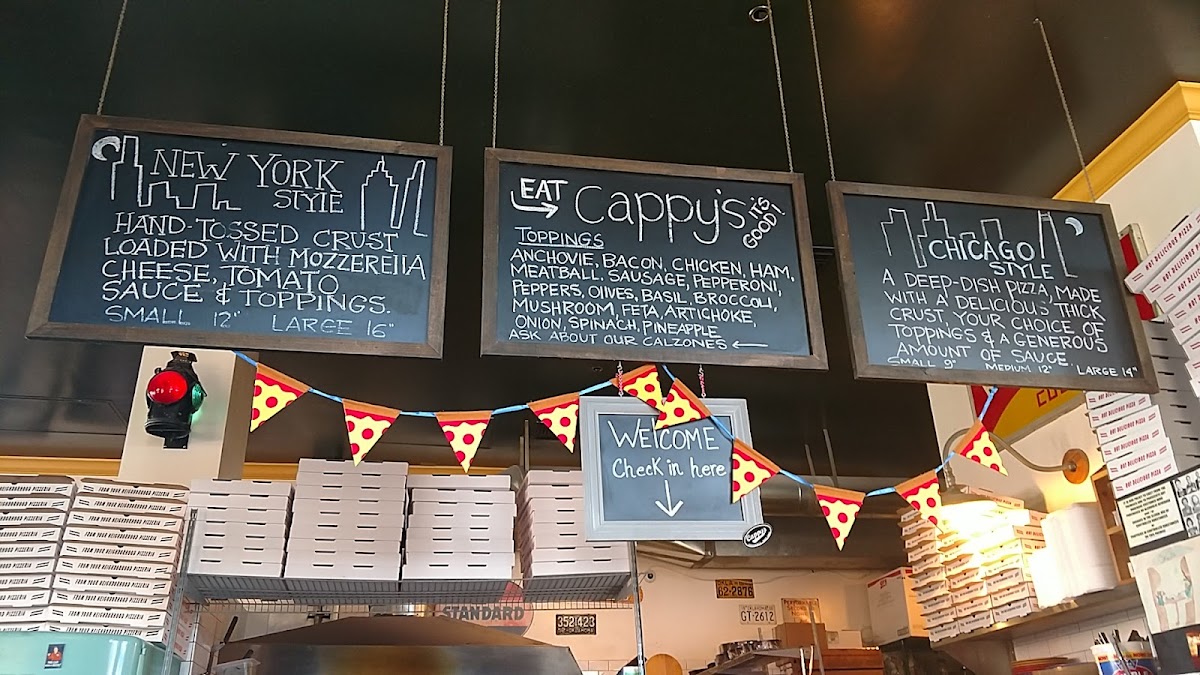 NEW YORK
STYLE
HAND-TOSSED CRUST
LOADED WITH MOZZERELLA
CHEESE, TOMATO
SAUCE & TOPPINGS.
SMALL 12" LARGE 16"
EAT
Cappy's
IT'S
GOOD!
TOPPINGS
ANCHOVIE, BACON, CHICKEN, HAM,
MEATBALL, SAUSAGE, PEPPERONI,
PEPPERS, OLIVES, BASIL, BROCCOLI,
MUSHROOM, FETA, ARTICHOKE,
ONION, SPINACH, PINEAPPLE
ASK ABOUT OUR CALZONES
CHICAGO
STYLE
A DEEP-DISH PIZZA, MADE
WITH A DELICIOUS THICK
CRUST, YOUR CHOICE OF
TOPPINGS & A GENEROUS
AMOUNT OF SAUCE
SMALL 9" MEDIUM 12" LARGE 14"
WELCOME
Check in here
Cappy's
FROM YOUR NEIGHBORHOOD PIZZERIA
HOT DELICIOUS PIZZA
STANDARD
352423
62-2876
GT-2612